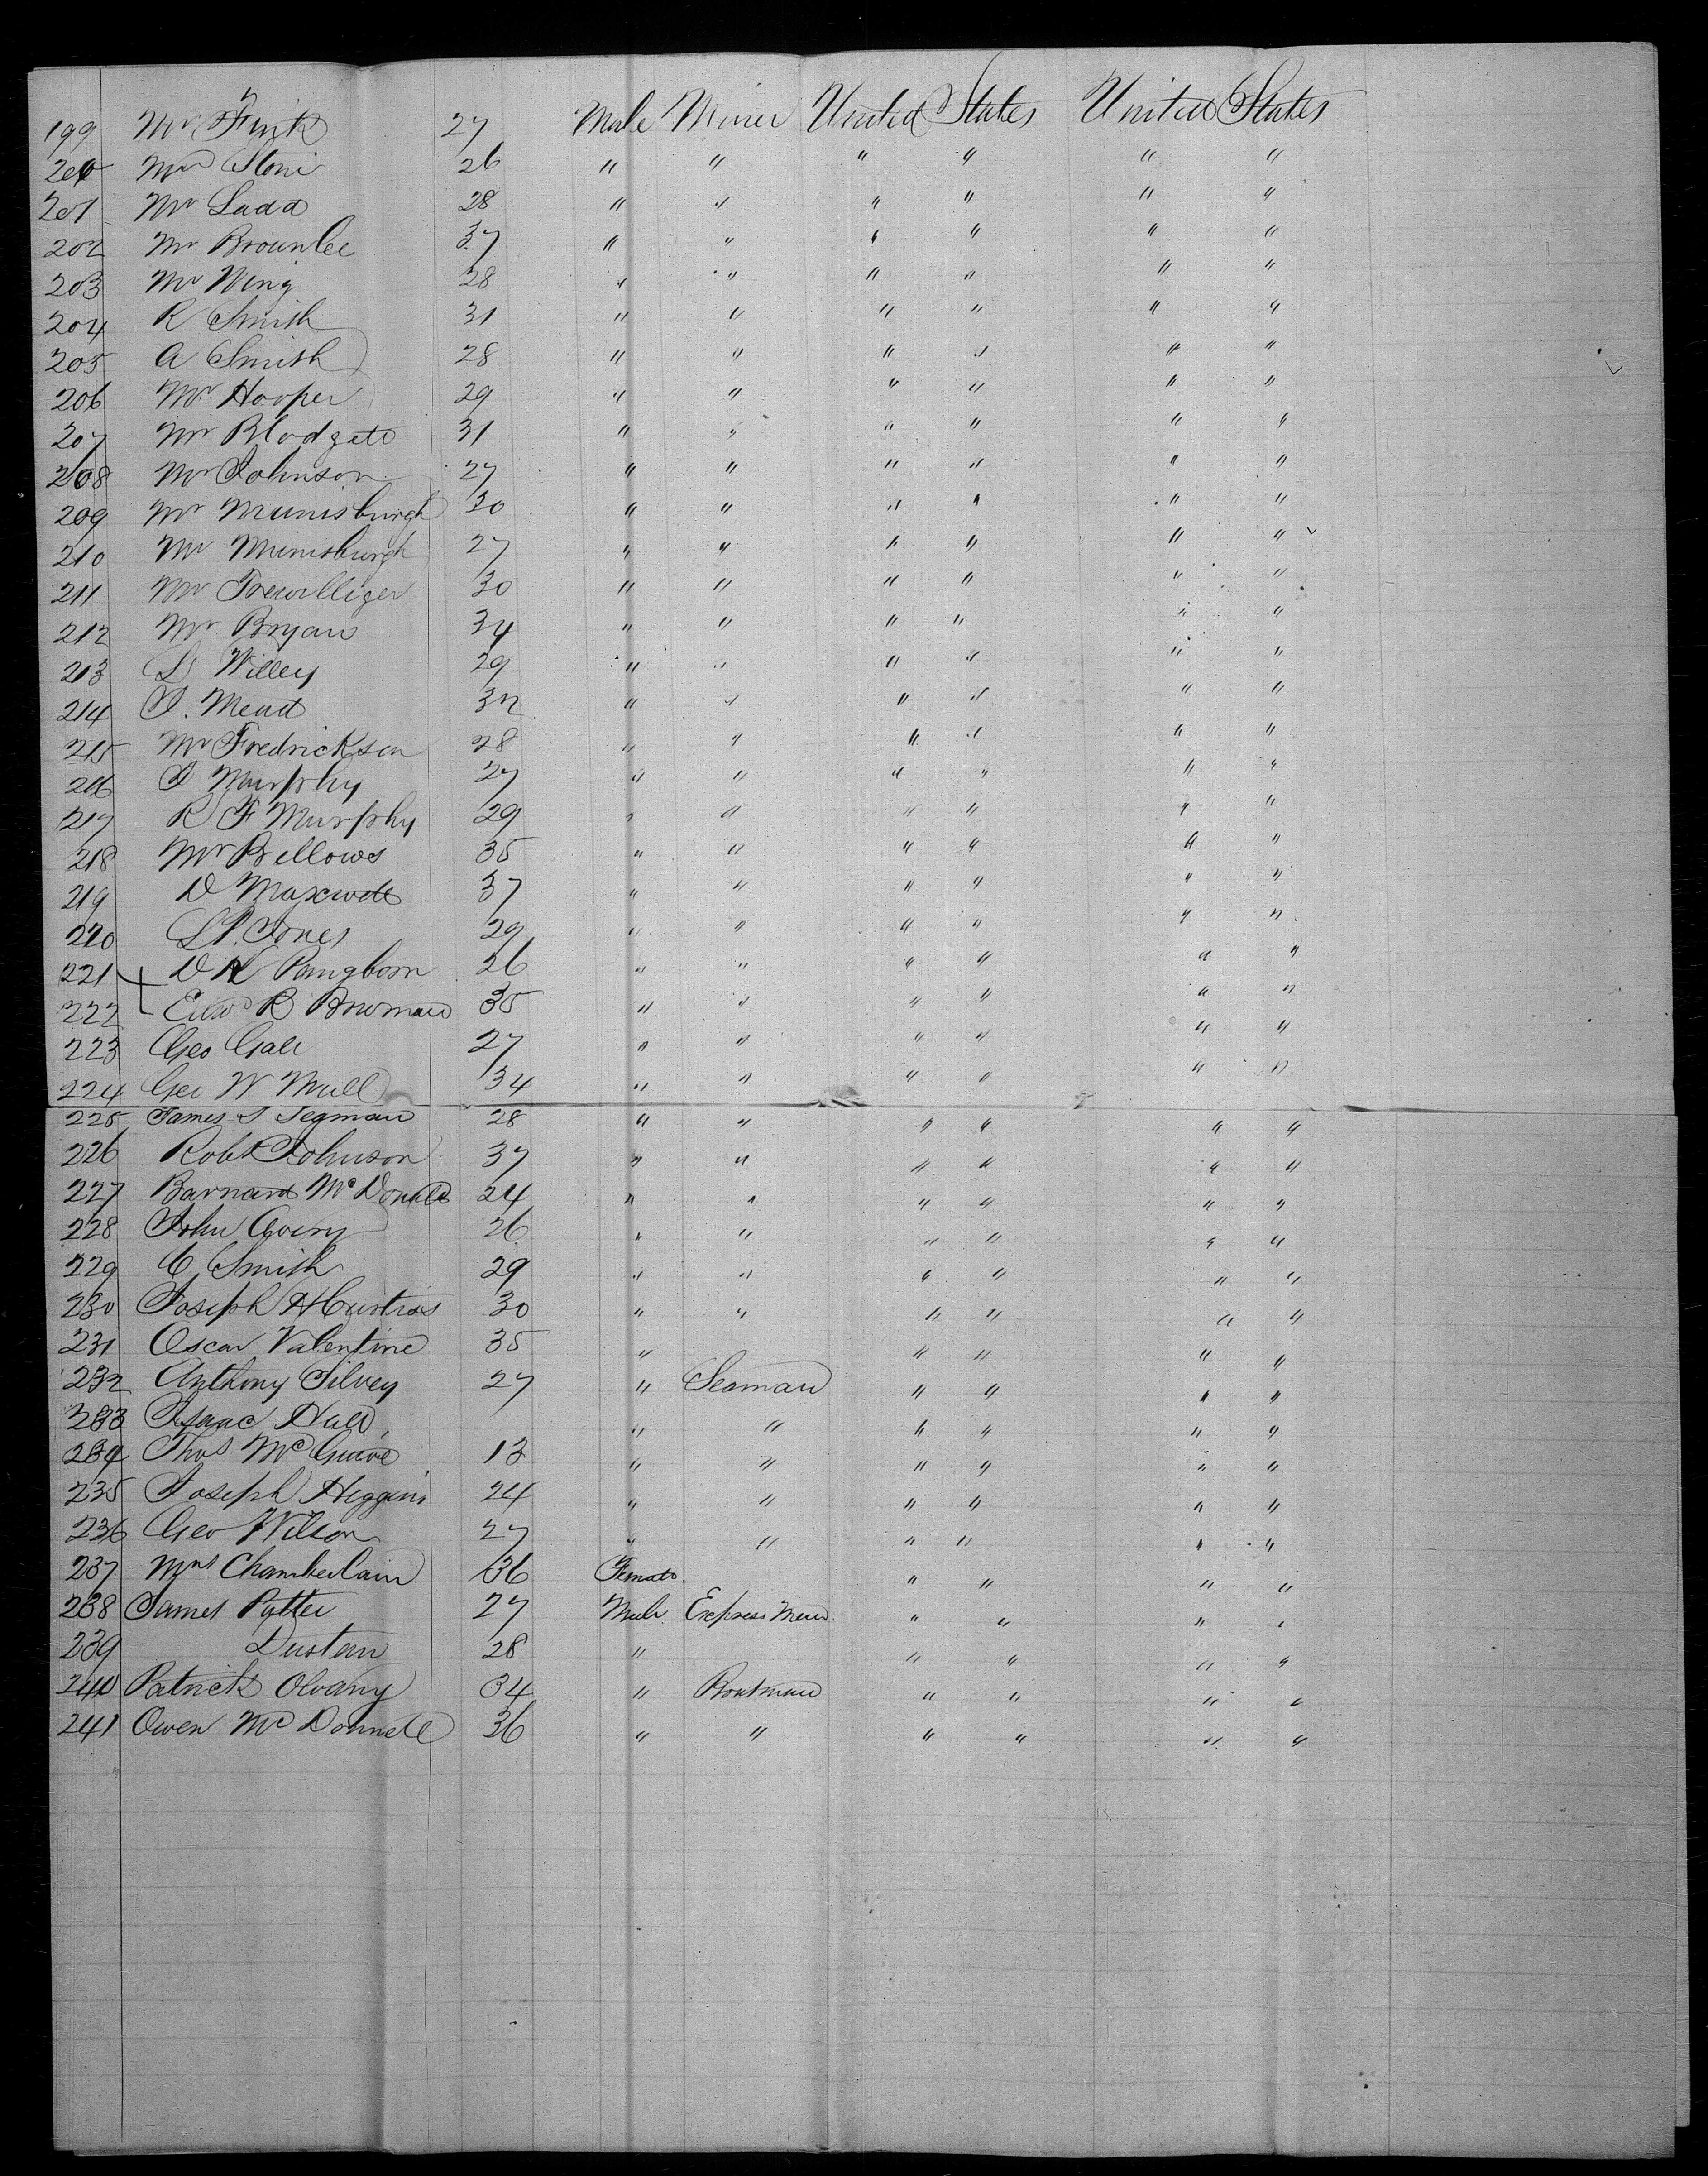 199 Mr Fink 27 Male Miner United States United States
200 Mr Stone 26 " " " " " "
201 Mr Ladd 28 " " " " " "
202 Mr Brownlee 37 " " " " " "
203 Mr Wing 28 " " " " " "
204 R Smith 31 " " " " " "
205 A Smith 28 " " " " " "
206 Mr Hooper 29 " " " " " "
207 Mr Blodgett 31 " " " " " "
208 Mr Johnson 27 " " " " " "
209 Mr Munisburgh 30 " " " " " "
210 Mr Munisburgh 27 " " " " " "
211 Mr Trewilliger 30 " " " " " "
212 Mr Bryan 34 " " " " " "
213 L Willey 29 " " " " " "
214 I. Mead 32 " " " " " "
215 Mr Fredrickson 28 " " " " " "
216 I Murphy 27 " " " " " "
217 R F Murphy 29 " " " " " "
218 Mr Bellows 35 " " " " " "
219 D Maxwell 37 " " " " " "
220 L P. Jones 29 " " " " " "
221 D N Pangborn 26 " " " " " "
222 Edw B Bowman 35 " " " " " "
223 Geo Gale 27 " " " " " "
224 Geo W Mull 34 " " " " " "
225 James S Segman 28 " " " " " "
226 Robt Johnson 37 " " " " " "
227 Barnard McDonald 24 " " " " " "
228 John Avery 26 " " " " " "
229 C Smith 29 " " " " " "
230 Joseph H Curtiss 30 " " " " " "
231 Oscar Valentine 35 " " " " "
232 Anthony Silvey 27 " Seaman " " " "
233 Isaac Hall " " " " " "
234 Thos McGuire 13 " " " " " "
235 Joseph Higgins 24 " " " " " "
236 Geo Wilson 27 " " " " " "
237 Mrs Chamberlain 36 Female " " " "
238 James Potter 27 Male Express Man " " " "
239 Dustan 28 " " " " "
240 Patrick Olvany 34 " Boatman " " " "
241 Owen McDonnell 36 " " " " " "